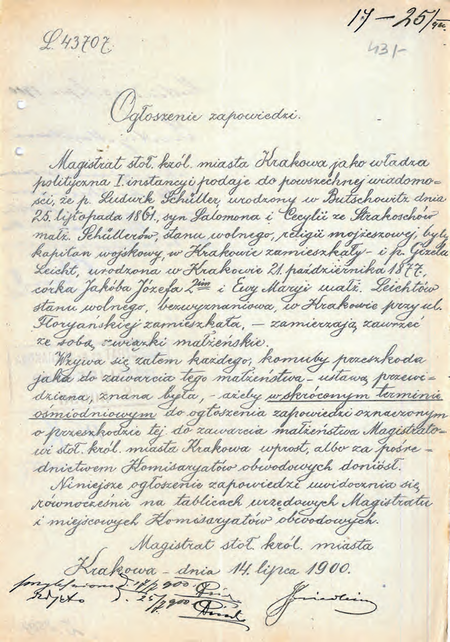 17 - 25/7 900.
L 43707
431
Ogłoszenie zapowiedzi.
Magistrat stoł. król. miasta Krakowa jako władza
polityczna I. instancyi podaje do powszechnej wiadomo-
ści, że p. Ludwik Schüller, urodzony w Butschowitz dnia
25. listopada 1861, syn Salomona i Cecylii ze Strakoschów
małż. Schüllerów, stanu wolnego, religii mojżeszowej, były
kapitan wojskowy, w Krakowie zamieszkały - i p. Gizela
Leicht, urodzona w Krakowie 21. października 1877,
córka Jakóba Józefa 2im i Ewy Maryi małż. Leichtów
stanu wolnego, bezwyznaniowa, w Krakowie przy ul.
Floryańskiej zamieszkała, - zamierzają zawrzeć
ze sobą związki małżeńskie.
Wzywa się zatem każdego, komuby przeszkoda
jaka do zawarcia tego małżeństwa - ustawą przewi-
dziana, znana była, - ażeby w skróconym terminie
ośmiodniowym do ogłoszenia zapowiedzi oznaczonym
o przeszkodzie tej do zawarcia małżeństwa Magistrato-
wi stoł. król. miasta Krakowa wprost, albo za pośre-
dnictwem Komisaryatów obwodowych doniósł.
Niniejsze ogłoszenie zapowiedzi uwidocznia się
równocześnie na tablicach urzędowych Magistratu
i miejscowych Komisaryatów obwodowych.
Magistrat stoł. król. miasta
Krakowa - dnia 14. lipca 1900.
przybito d. 17/7 900
zdjęto d. 25/7 900